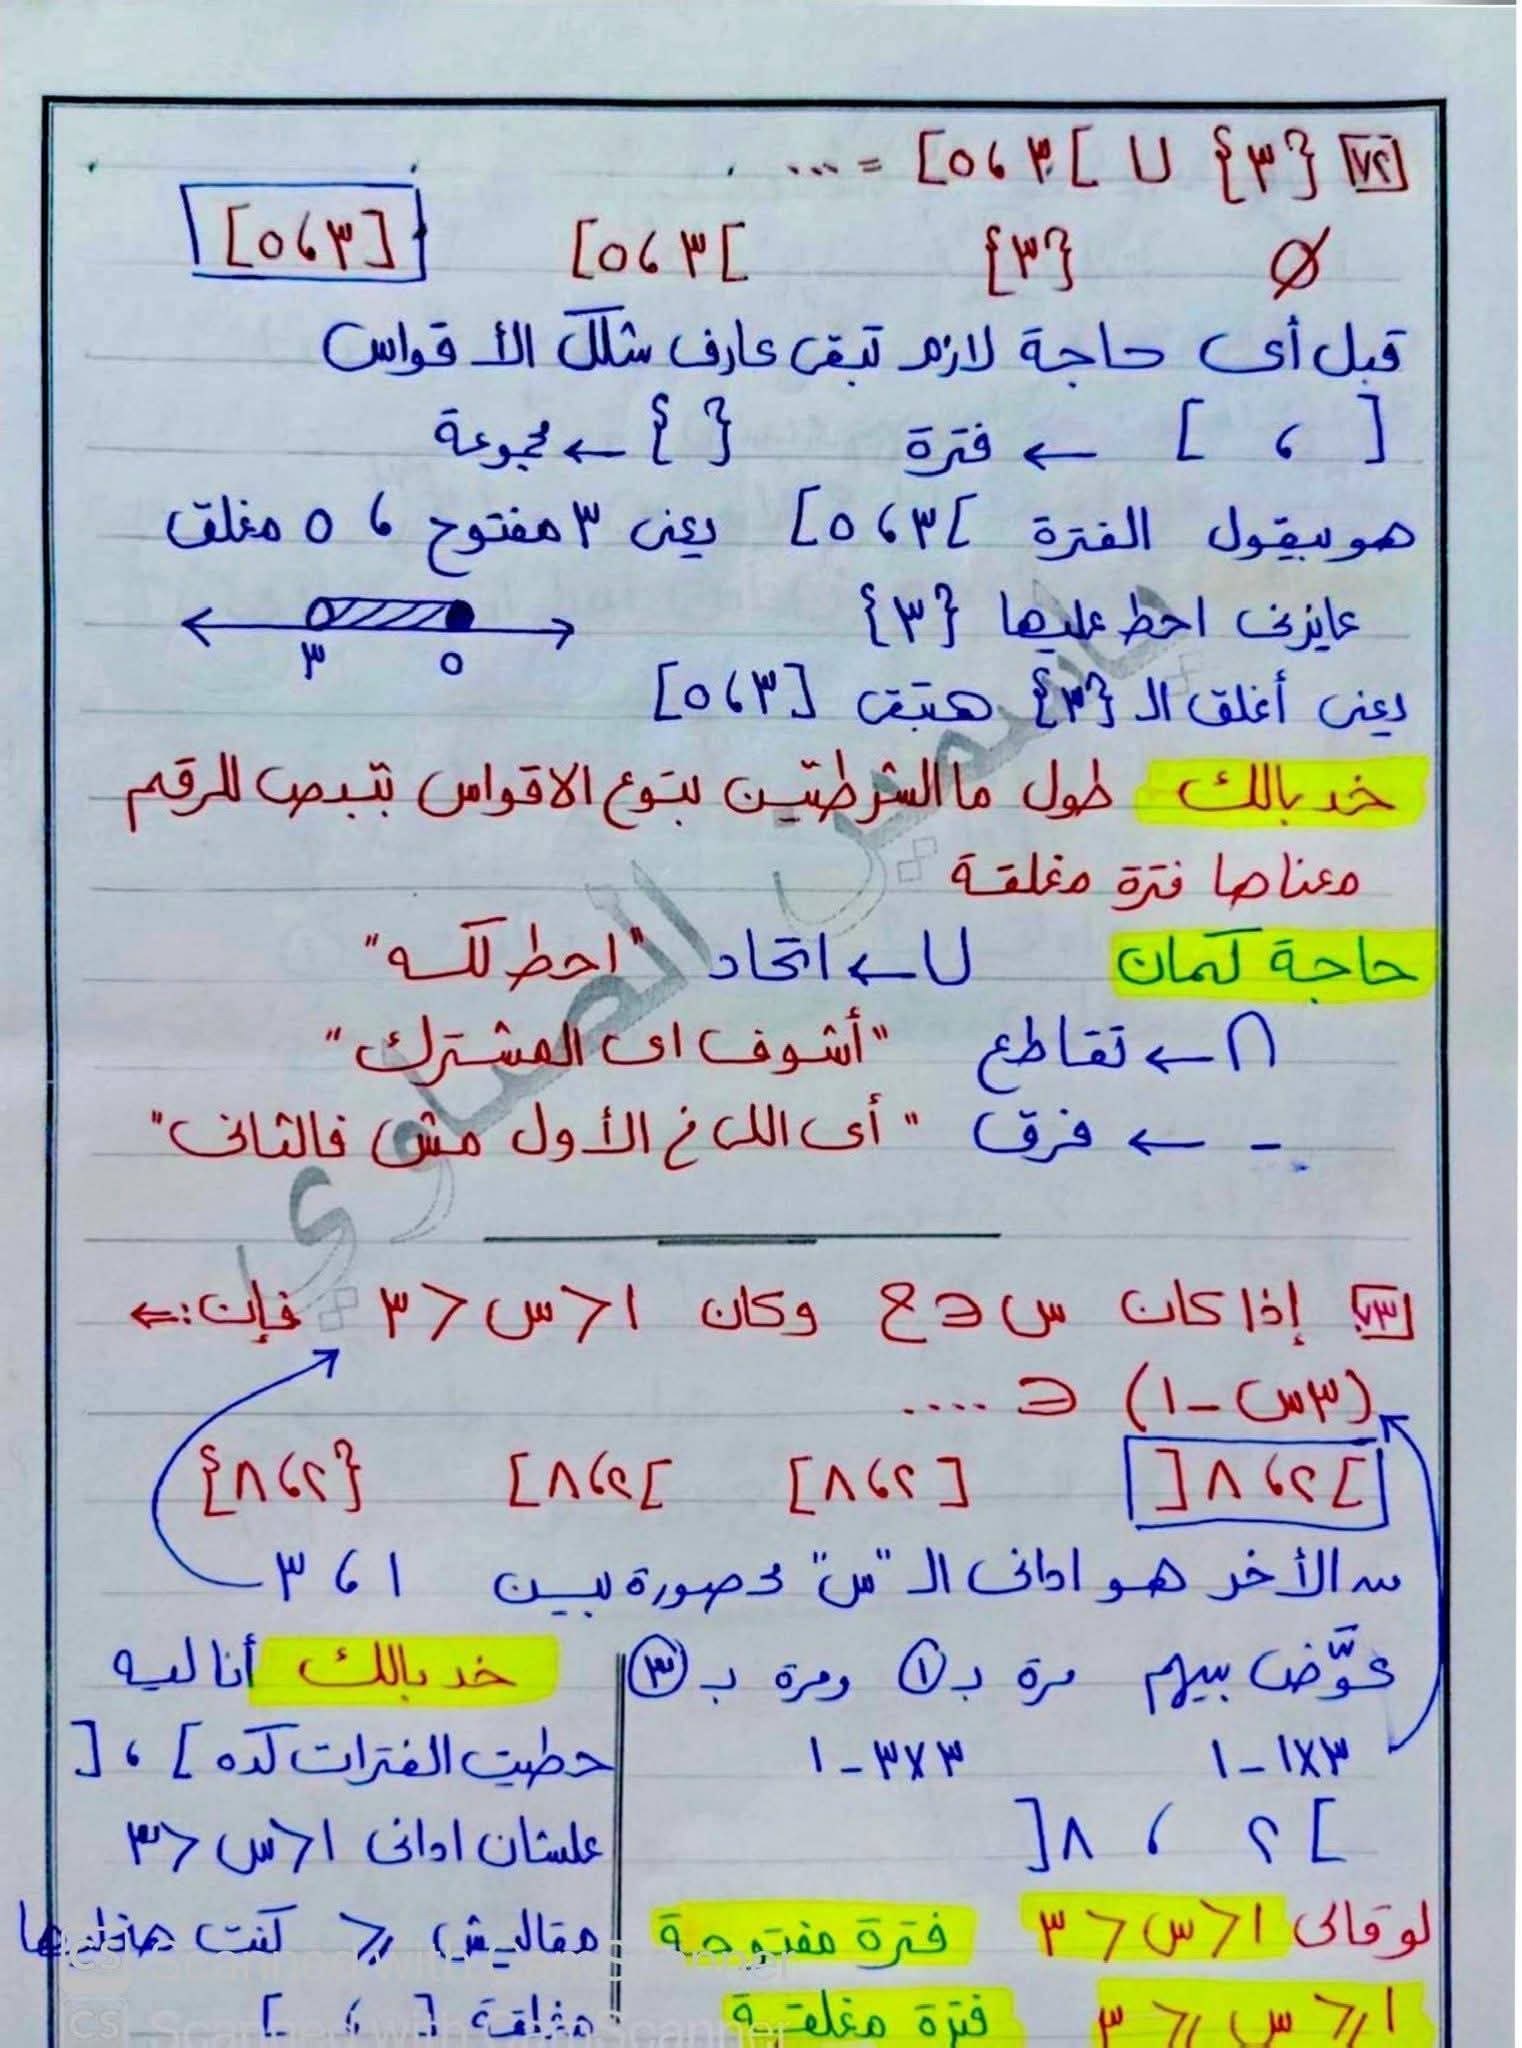 ٧٢ {٣} ∪ ]٣ ، ٥] = ...
∅ {٣} ]٣ ، ٥] [٣ ، ٥]
قبل أى حاجة لازم تبقى عارف شكل الأقواس
[ ، ] ← فترة { } ← مجموعة
هو بيقول الفترة ]٣ ، ٥] يعنى ٣ مفتوح ، ٥ مغلق
عايزنى احط عليها {٣}
٣ ٥
يعنى أغلق الـ {٣} هتبقى [٣ ، ٥]
خد بالك طول ما الشرطتين بتوع الاقواس بتبص للرقم
معناها فترة مغلقة
حاجة كمان ∪ ← اتحاد "احط لكسه"
∩ ← تقاطع "أشوف اى المشترك"
- ← فرق "أى اللى فى الأول مش فالثانى"
٧٣ إذا كان س ∈ ح وكان ١ < س < ٣ فإن :←
(٣س - ١) ∈ ....
]٢ ، ٨[ [٢ ، ٨] ]٢ ، ٨] {٢ ، ٨}
من الأخر هو ادانى الـ "س" محصورة بين ١ ، ٣
عوَّض بيهم مرة بـ ① ومرة بـ ③
٣×١ - ١ ٣×٣ - ١
]٢ ، ٨[
لو قالى ١ < س < ٣ فترة مفتوحة
١ ≤ س ≤ ٣ فترة مغلقة
خد بالك أنا ليه
حطيت الفترات كده ] ، [
علشان ادانى ١ < س < ٣
مقاليش ≤ كنت هخليها
مغلقة [ ، ]
ياسمين الصاوي
CS Scanned with CamScanner
CS Scanned with CamScanner